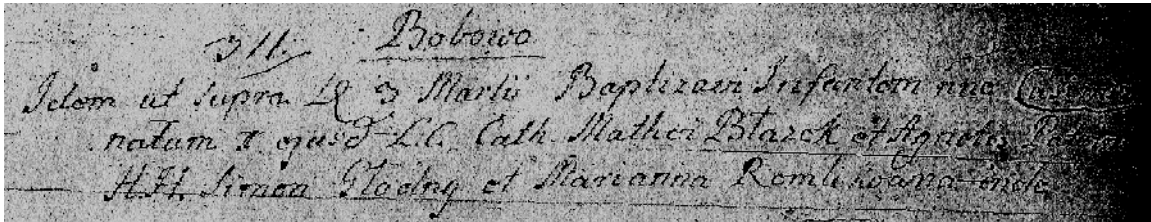 311. Bobowo
Idem ut supra D 3 Martii Baptizavi Infantem nne
natum I ejusd L.C. Cath. Mathei Błazek et Agnetis
H.H. Simon Gładny et Marianna inde